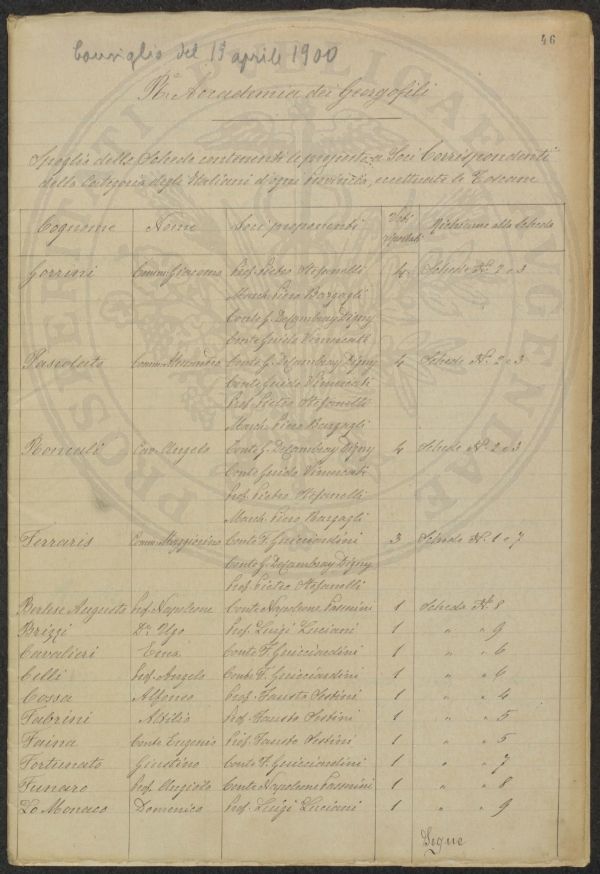 46
Consiglio del 13 aprile 1900
Rª Accademia dei Georgofili
Spoglio delle Schede contenenti le proposte di Soci Corrispondenti
della Categoria degli Italiani d'ogni Provincia, eccettuate le Toscane
Cognome Nome Soci proponenti Voti riportati Richiamo alla Scheda
Gorrini Comm. Giacomo Prof. Pietro Stefanelli 4 Schede N.º 2 e 3
March. Piero Bargagli
Conte G. De Cambray Digny
Conte Guido Vimercati
Pascolato Comm. Alessandro Conte G. De Cambray Digny 4 Schede N.º 2 e 3
Conte Guido Vimercati
Prof. Pietro Stefanelli
March. Piero Bargagli
Ronculi Cav. Angelo Conte G. De Cambray Digny 4 Schede N.º 2 e 3
Conte Guido Vimercati
Prof. Pietro Stefanelli
March. Piero Bargagli
Ferraris Comm. Maggiorino Conte F. Guicciardini 3 Schede N.º 1 e 7
Conte G. De Cambray Digny
Prof. Pietro Stefanelli
Berlese Augusto Prof. Napoleone Conte Napoleone Passerini 1 Scheda N.º 8
Brizzi Dr. Ugo Prof. Luigi Luciani 1 " " 9
Cavalieri Enea Conte F. Guicciardini 1 " " 6
Celli Prof. Angelo Conte F. Guicciardini 1 " " 6
Cossa Alfonso Prof. Fausto Sestini 1 " " 4
Fabrini Attilio Prof. Fausto Sestini 1 " " 5
Faina Conte Eugenio Prof. Fausto Sestini 1 " " 5
Fortunato Giustino Conte F. Guicciardini 1 " " 7
Funaro Prof. Angiolo Conte Napoleone Passerini 1 " " 8
Lo Monaco Domenico Prof. Luigi Luciani 1 " " 9
Segue